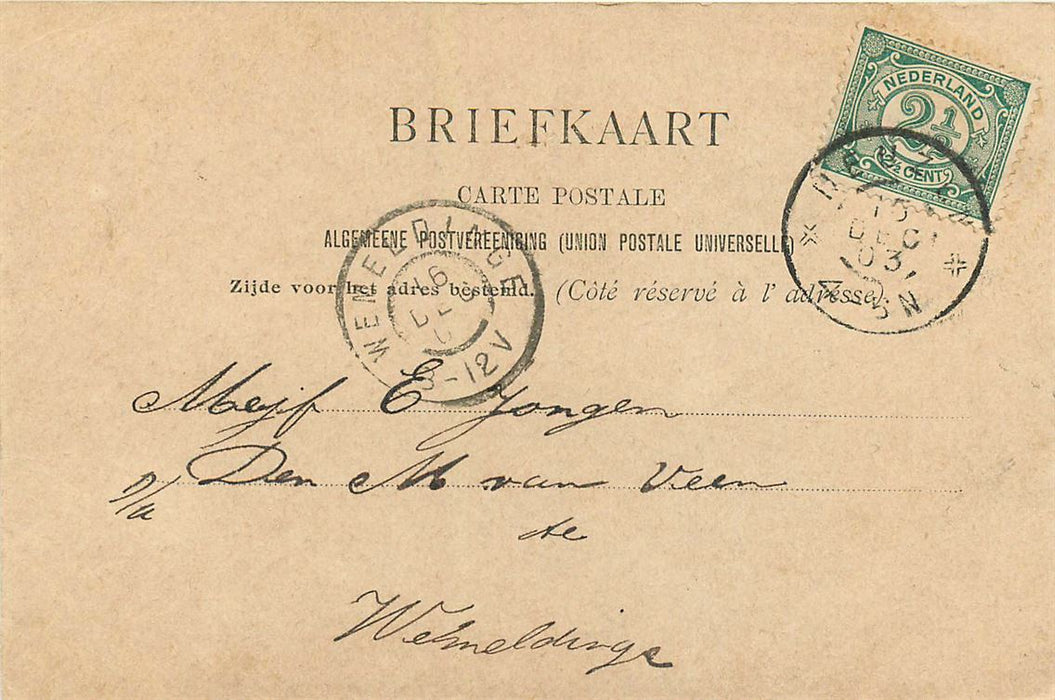 NEDERLAND
2½
2½ CENT
BRIEFKAART
CARTE POSTALE
ALGEMEENE POSTVEREENIGING (UNION POSTALE UNIVERSELLE)
Zijde voor het adres bestemd. (Côté réservé à l'adresse).
15
DEC
03
N
WEMELDINGE
16
DE
8-12V
Mejf E Jongen
p/a Den M van Veen
te
Wemeldinge